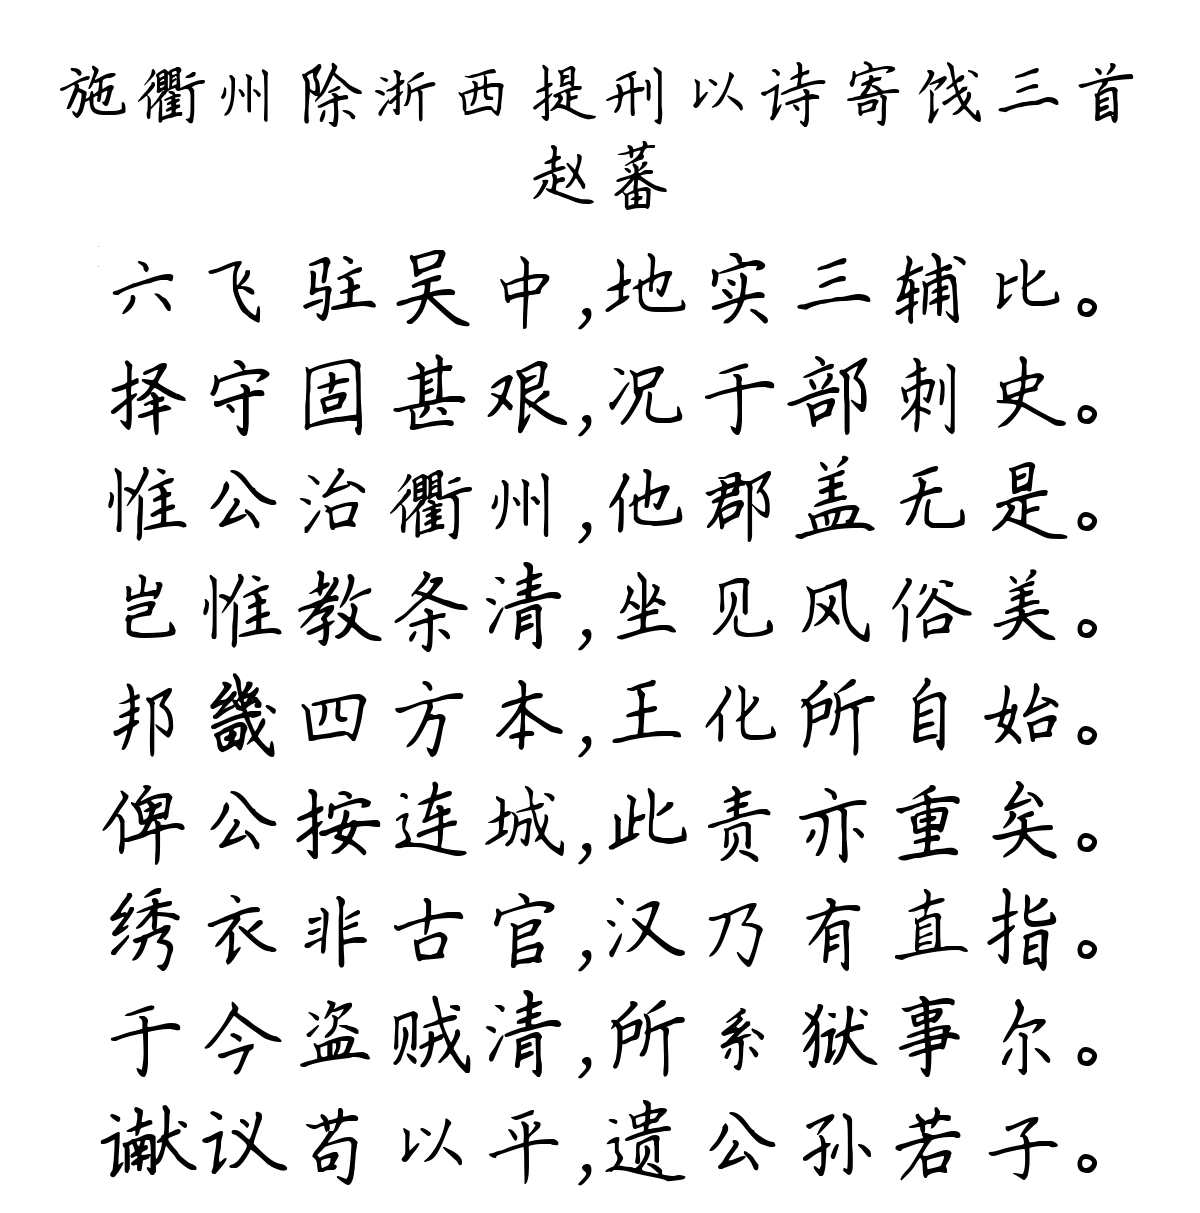 施衢州除浙西提刑以诗寄饯三首
赵蕃
六飞驻吴中,地实三辅比。
择守固甚艰,况于部刺史。
惟公治衢州,他郡盖无是。
岂惟教条清,坐见风俗美。
邦畿四方本,王化所自始。
俾公按连城,此责亦重矣。
绣衣非古官,汉乃有直指。
于今盗贼清,所系狱事尔。
谳议苟以平,遗公孙若子。